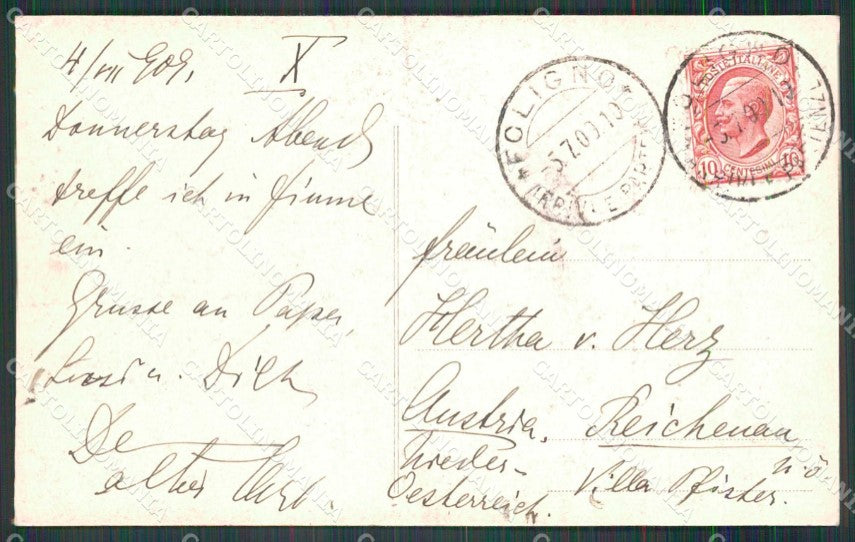 4/VII 909. X
Donnerstag Abend
treffe ich in Fiume
ein.
Grüsse an Papa,
u. Dich
De
alter
FOLIGNO
5.7.09.10
ARRIVI E PARTENZE
FOLIGNO
5.7.09.10
ARRIVI E PARTENZE
POSTE ITALIANE
10 CENTESIMI 10
Fräulein
Hertha v. Herz
Austria, Reichenau
Nieder- N.Ö
Oesterreich. Villa Pfister.
CARTOLINOMANIA